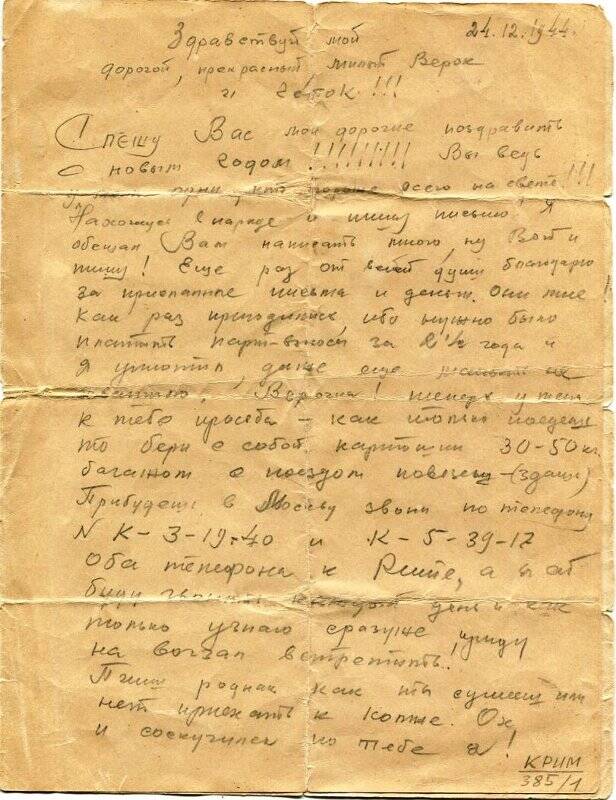 24.12.1944.
Здравствуй мой
дорогой, прекрасный милый Верок
и !!!
Спешу Вас мои дорогие поздравить
с новым годом!!!!!!!!! Вы ведь
всего на свете!!!
Нахожусь в наряде и пишу письмо! Я
обещал Вам написать много, ну вот и
пишу! Еще раз от всей души благодарю
за присланные письма и деньги. Они мне
как раз пригодились, ибо нужно было
платить парт-взносы за 2½ года и
я уплатил, даже еще
Верочка! теперь у меня
к тебе просьба – как только поедешь
то бери с собой картошки 30-50 кг.
багажом с поездом повезешь (сдашь)
Прибудешь в Москву звони по телефону
N К-3-19-40 и К-5-39-17
Оба телефона к а я
буду звонить каждый день и как
только узнаю сразу же, приду
на вокзал встретить.
Пиши родная как ты сумеешь или
нет приехать к Ох
и соскучился по тебе я!
КРИМ
385/1